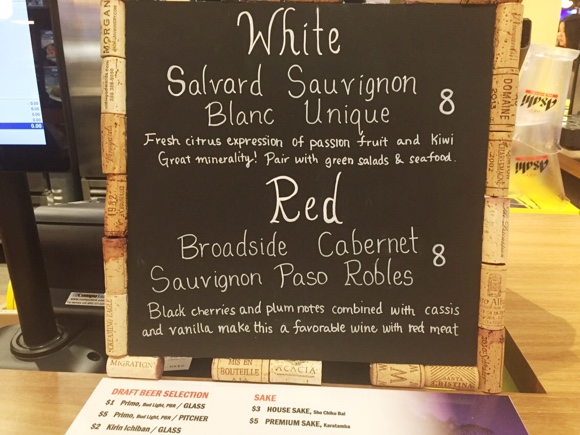 White
Salvard Sauvignon
Blanc Unique 8
Fresh citrus expression of passion fruit and kiwi
Great minerality! Pair with green salads & seafood.
Red
Broadside Cabernet
Sauvignon Paso Robles 8
Black cherries and plum notes combined with cassis
and vanilla make this a favorable wine with red meat
MORGAN
1952
DOMAINE
2013
2002
SCREAMING EAGLE
MIGRATION
MIS EN
BOUTEILLE
ACACIA
W
SANTA
CRISTINA
Asahi
Asahi
0.00
DRAFT BEER SELECTION
$1 Primo, Bud Light, PBR / GLASS
$5 Primo, Bud Light, PBR / PITCHER
$2 Kirin Ichiban / GLASS
SAKE
$3 HOUSE SAKE, Sho Chiku Bai
$5 PREMIUM SAKE, Karatamba